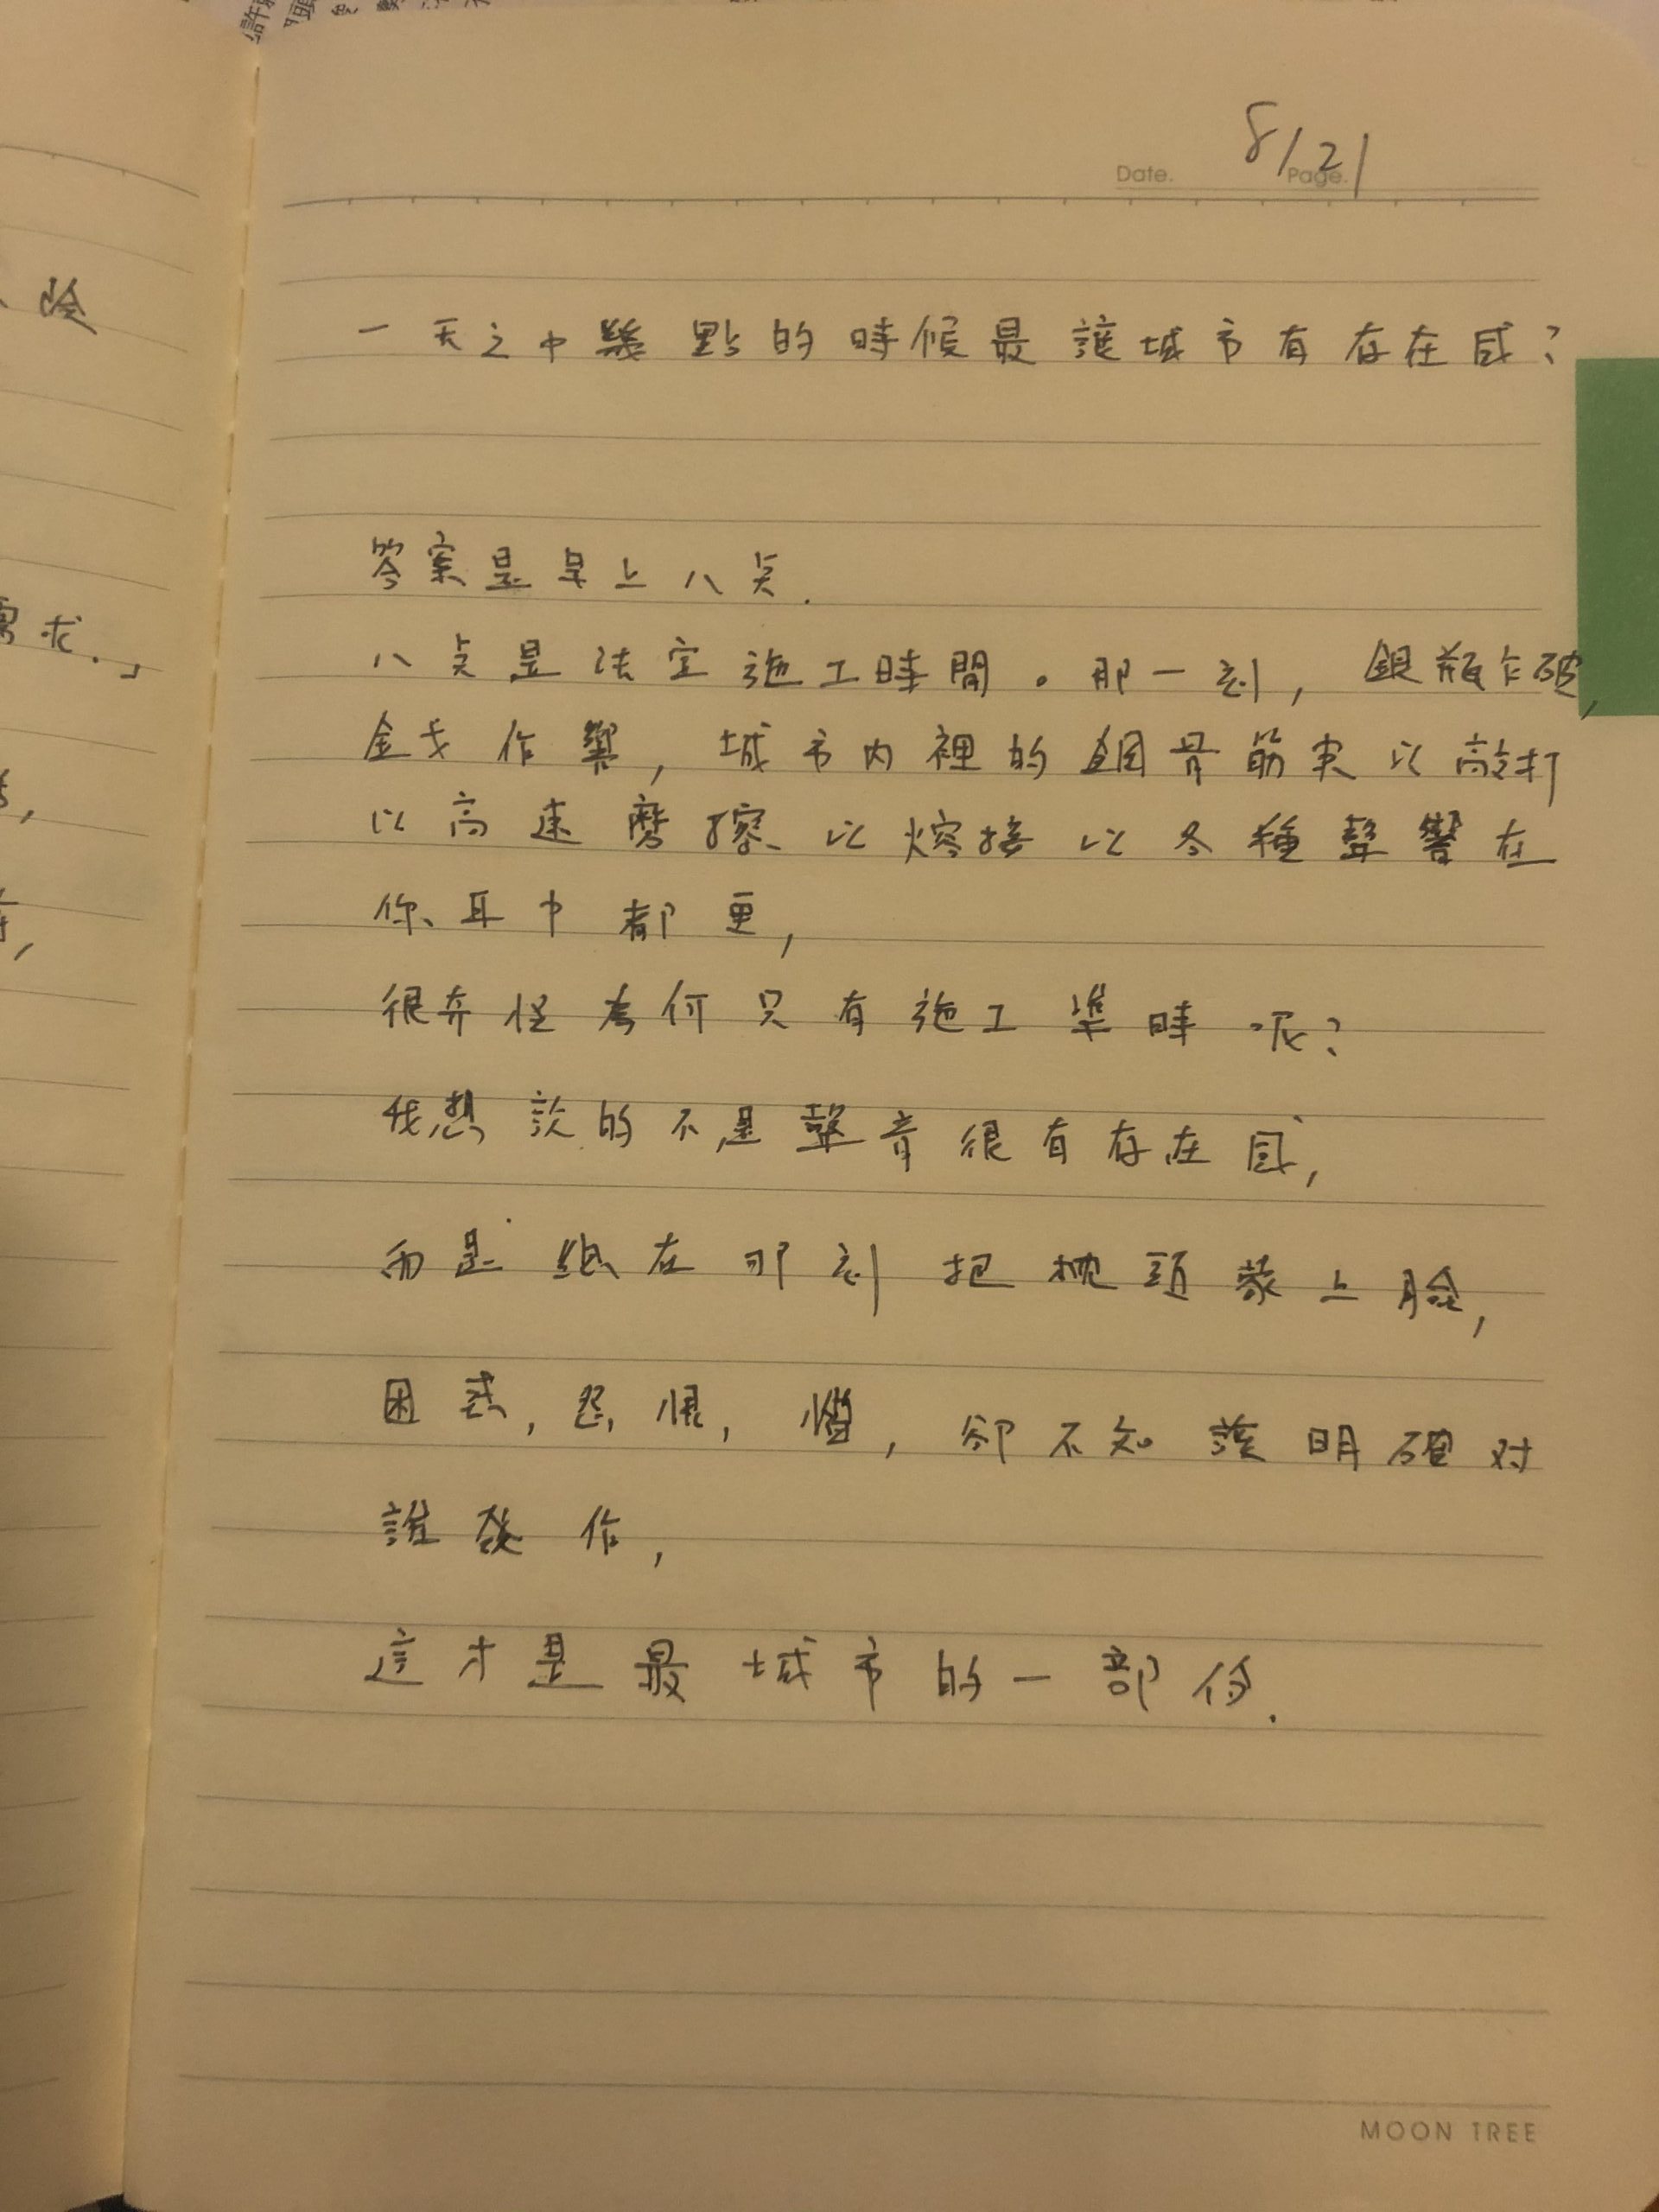 8/21
Date. Page.
一天之中幾點的時候最讓城市有存在感?
答案是早上八点.
八点是法定施工時間。那一刻, 銀瓶乍破,
金戈作響, 城市內裡的鋼骨筋束以敲打
以高速磨擦、以熔接以各種聲響在
你耳中都更,
很奇怪為何只有施工準時呢?
我想說的不是聲音很有存在感,
而是總在那刻把枕頭蒙上臉,
困惑, 怨恨, 惱, 卻不知該明確对
誰發作,
這才是最城市的一部份.
MOON TREE
險
需求.」